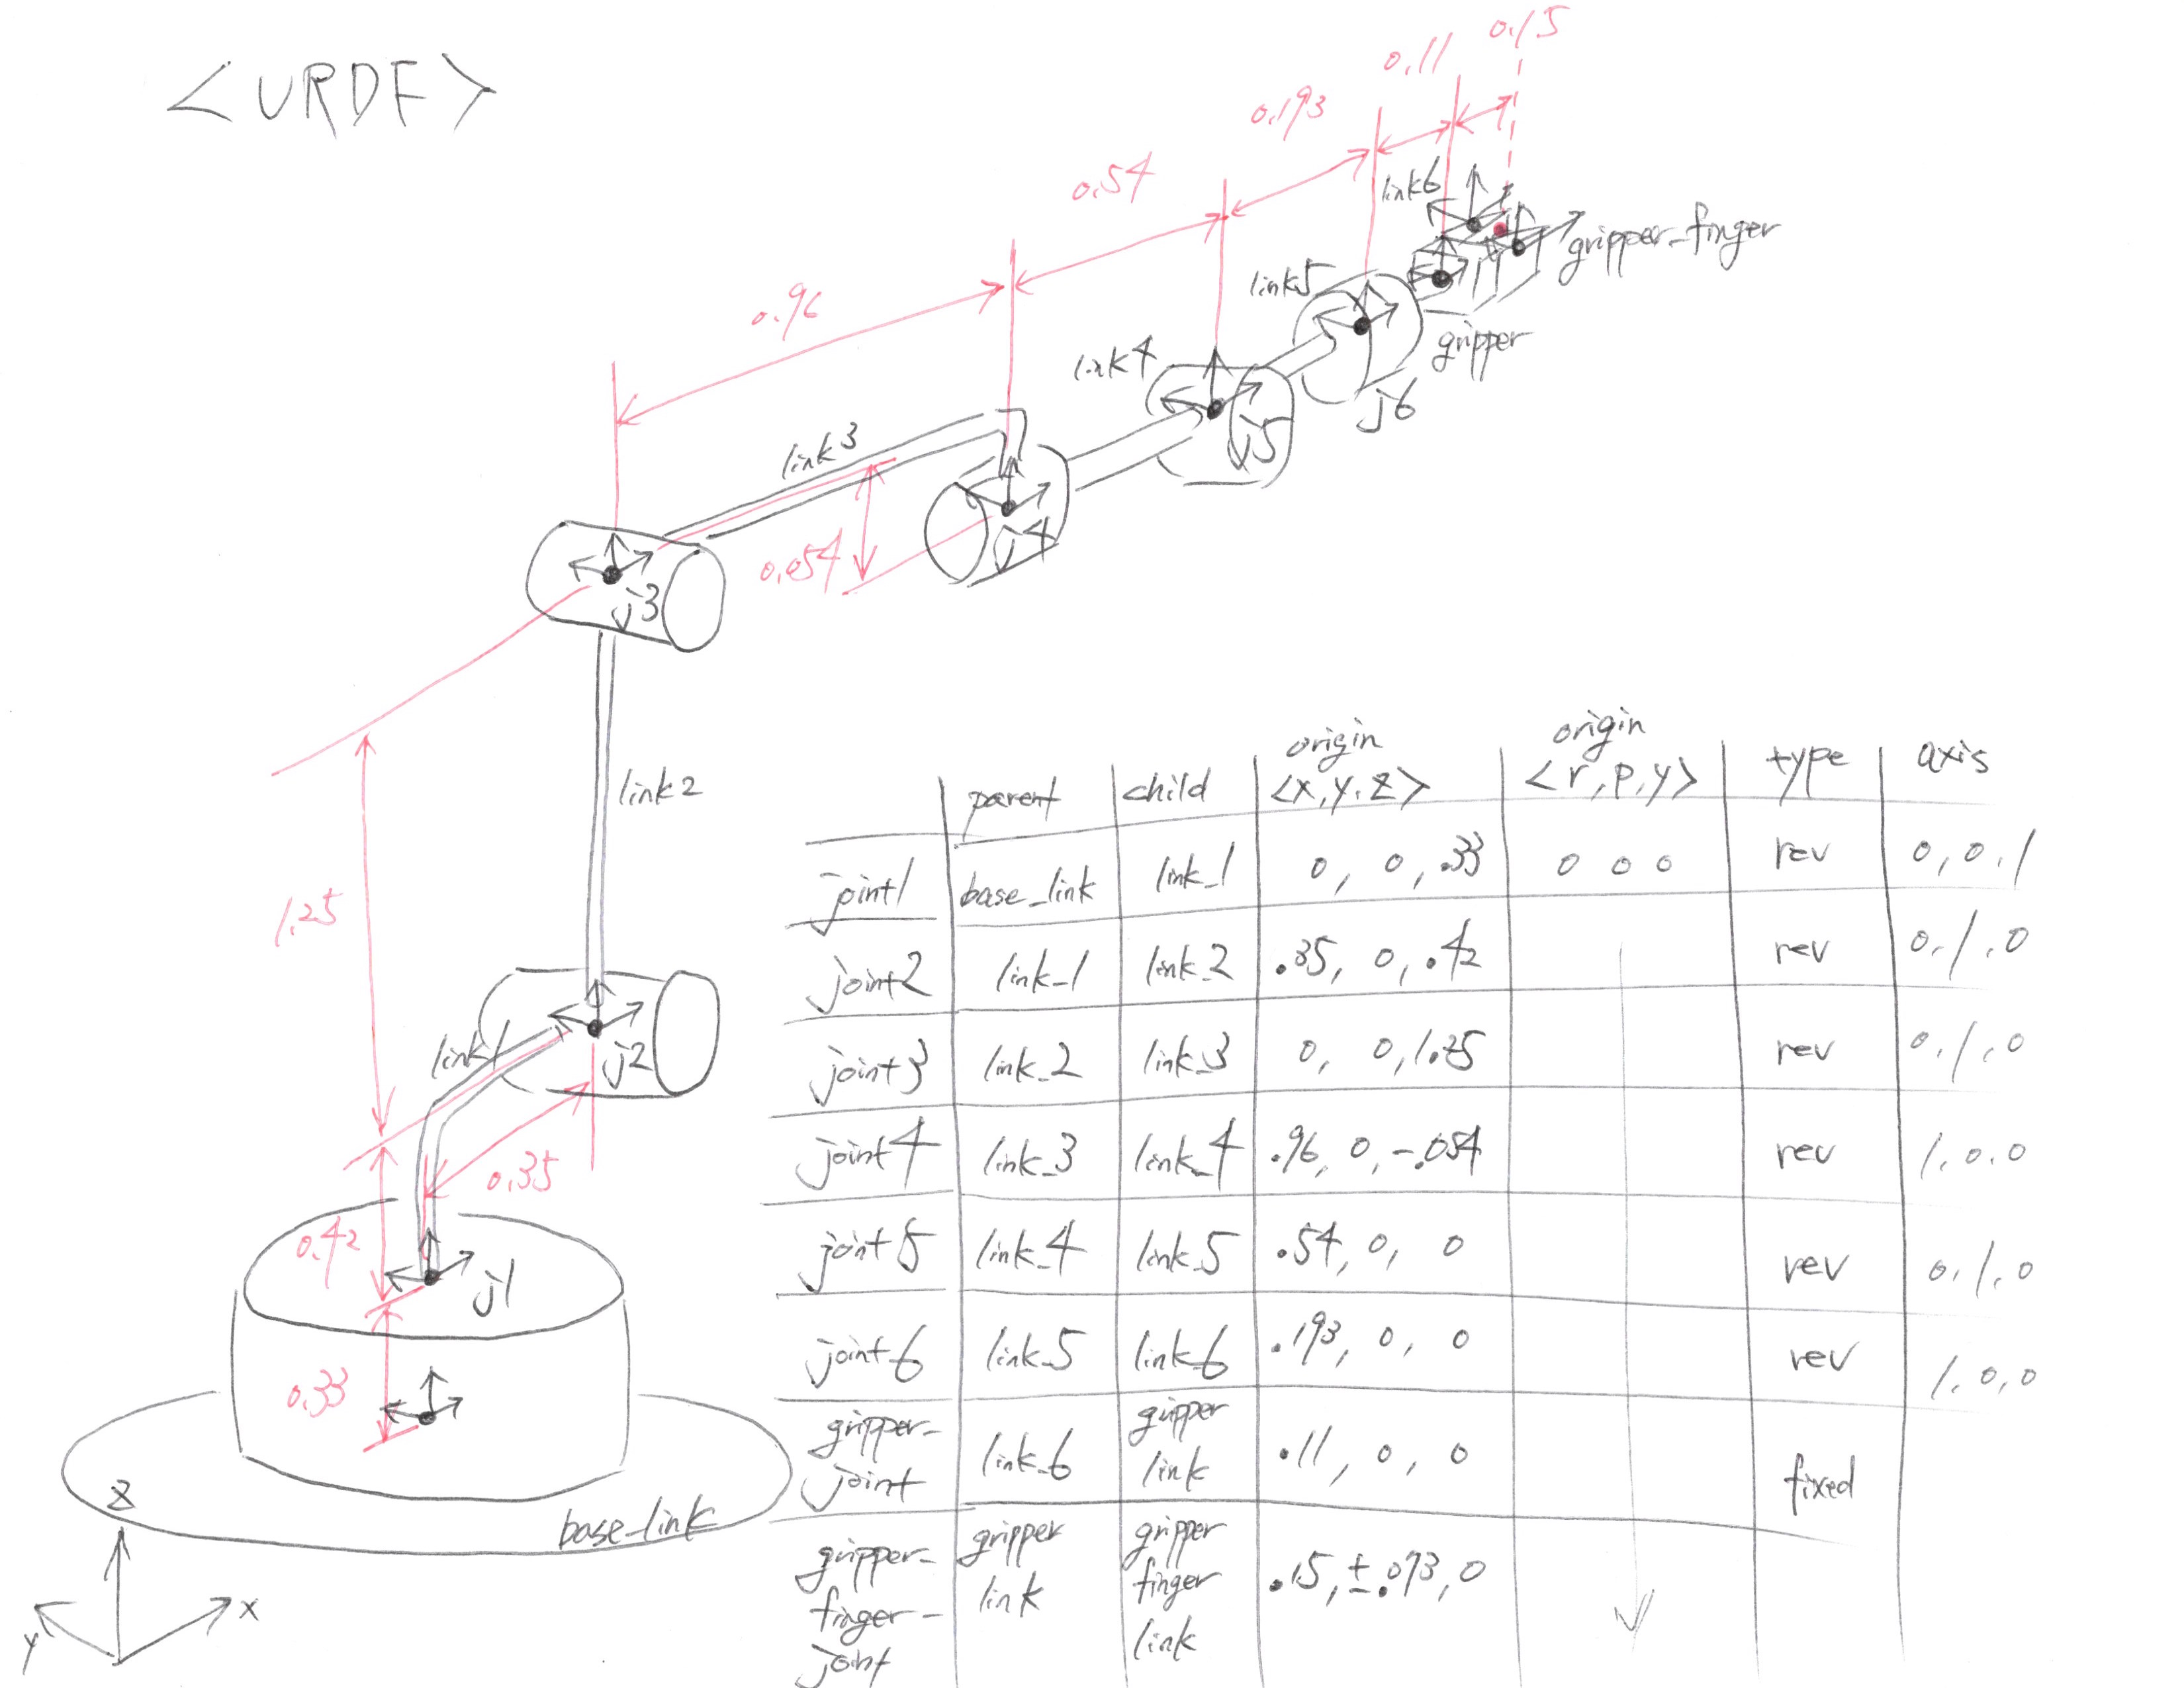 <URDF>
0.15
0.11
0.193
0.54
0.96
link6
gripper_finger
link5
gripper
j6
link4
j5
link3
0.054
j4
j3
1.25
link2
link1
j2
0.35
0.42
j1
0.33
base_link
z
x
y
parent child origin <x,y,z> origin <r,p,y> type axis
joint1 base_link link_1 0, 0, .33 0 0 0 rev 0,0,1
joint2 link_1 link_2 .35, 0, .42 rev 0,1,0
joint3 link_2 link_3 0, 0, 1.25 rev 0,1,0
joint4 link_3 link_4 .96, 0, -.054 rev 1,0,0
joint5 link_4 link_5 .54, 0, 0 rev 0,1,0
joint6 link_5 link_6 .193, 0, 0 rev 1,0,0
gripper-joint link_6 gripper link .11, 0, 0 fixed
gripper-finger-joint gripper link gripper finger link .15, ±.073, 0